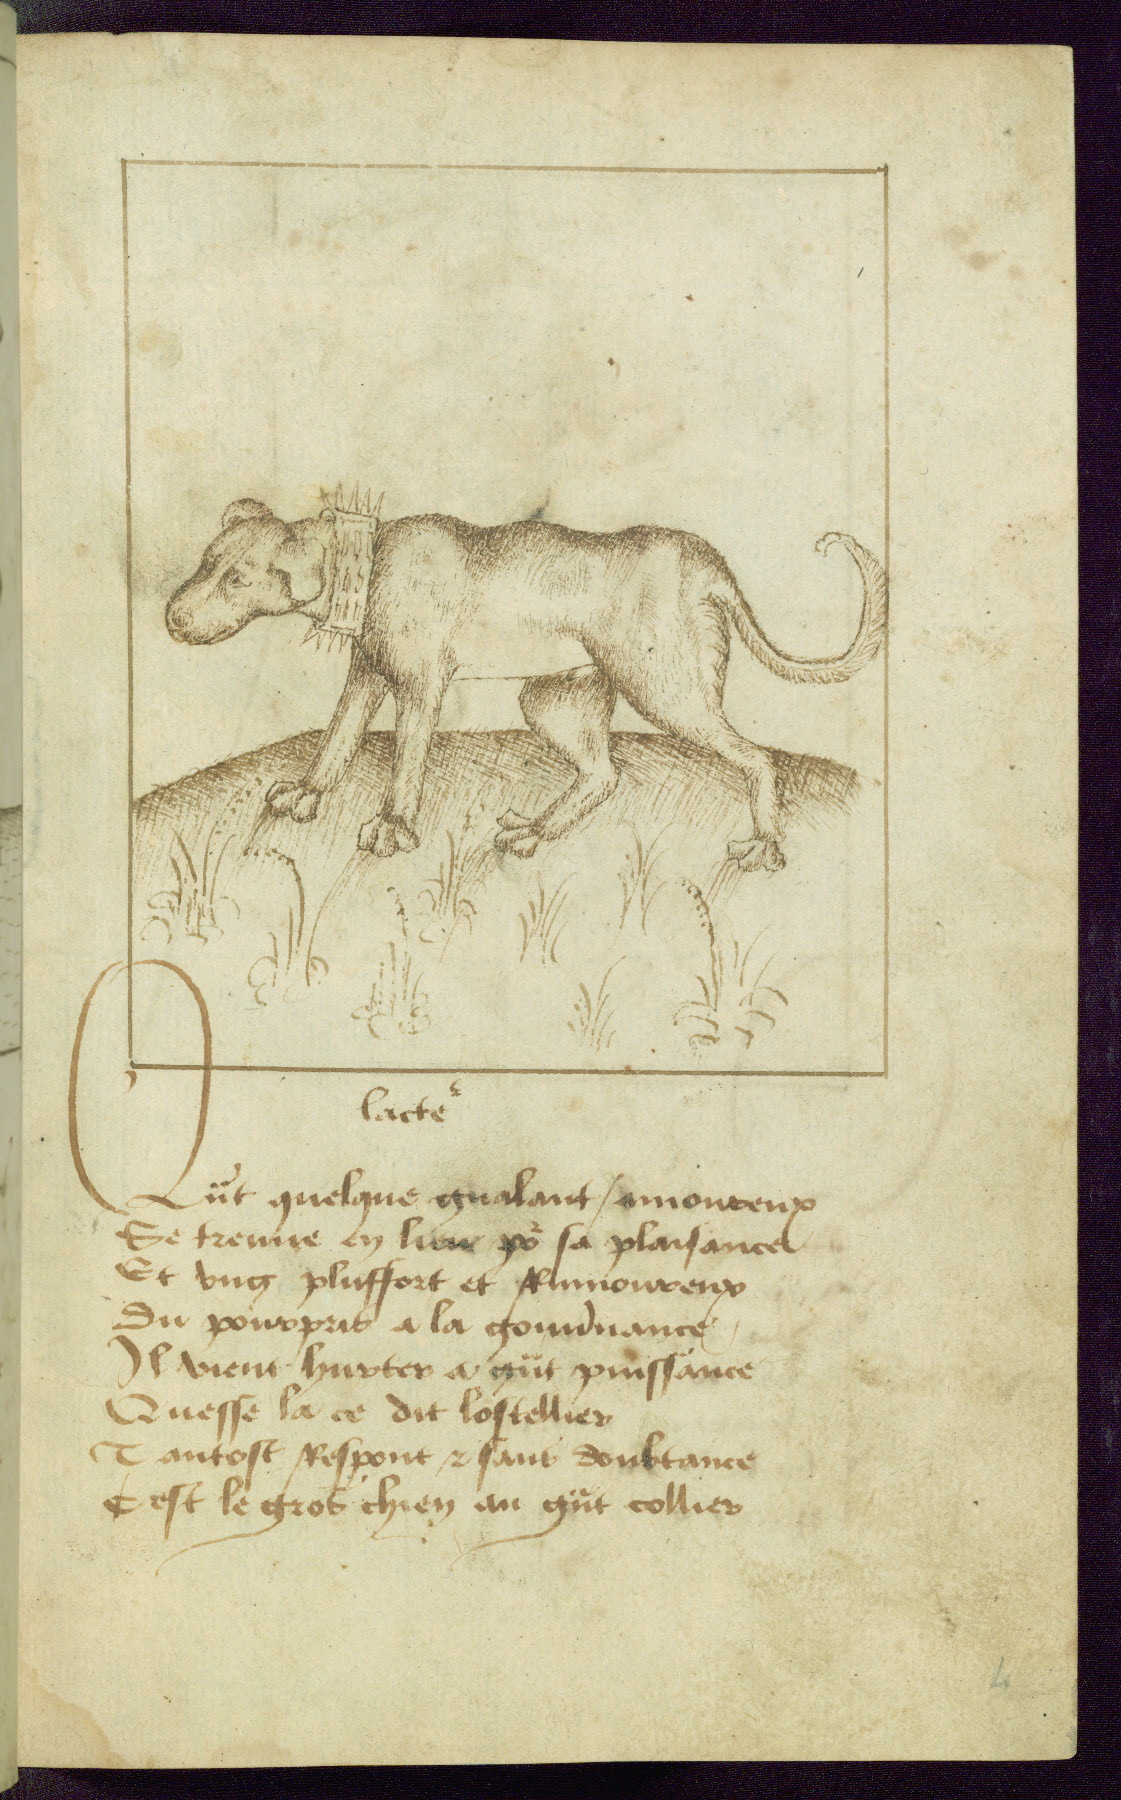 lacteᷣ
Qūāt quelque gualant / amoureux
Se treuue en lieu po᷑ sa plaisance
Et vng plusfort et Rumoureux
Du pourpris a la gouu̾nance
Il vient hurter a gūt puissance
Quesse la ce dit lostellier
Tantost Respont 2 sans doubtance
Cest le gros chien au gūt collier
4